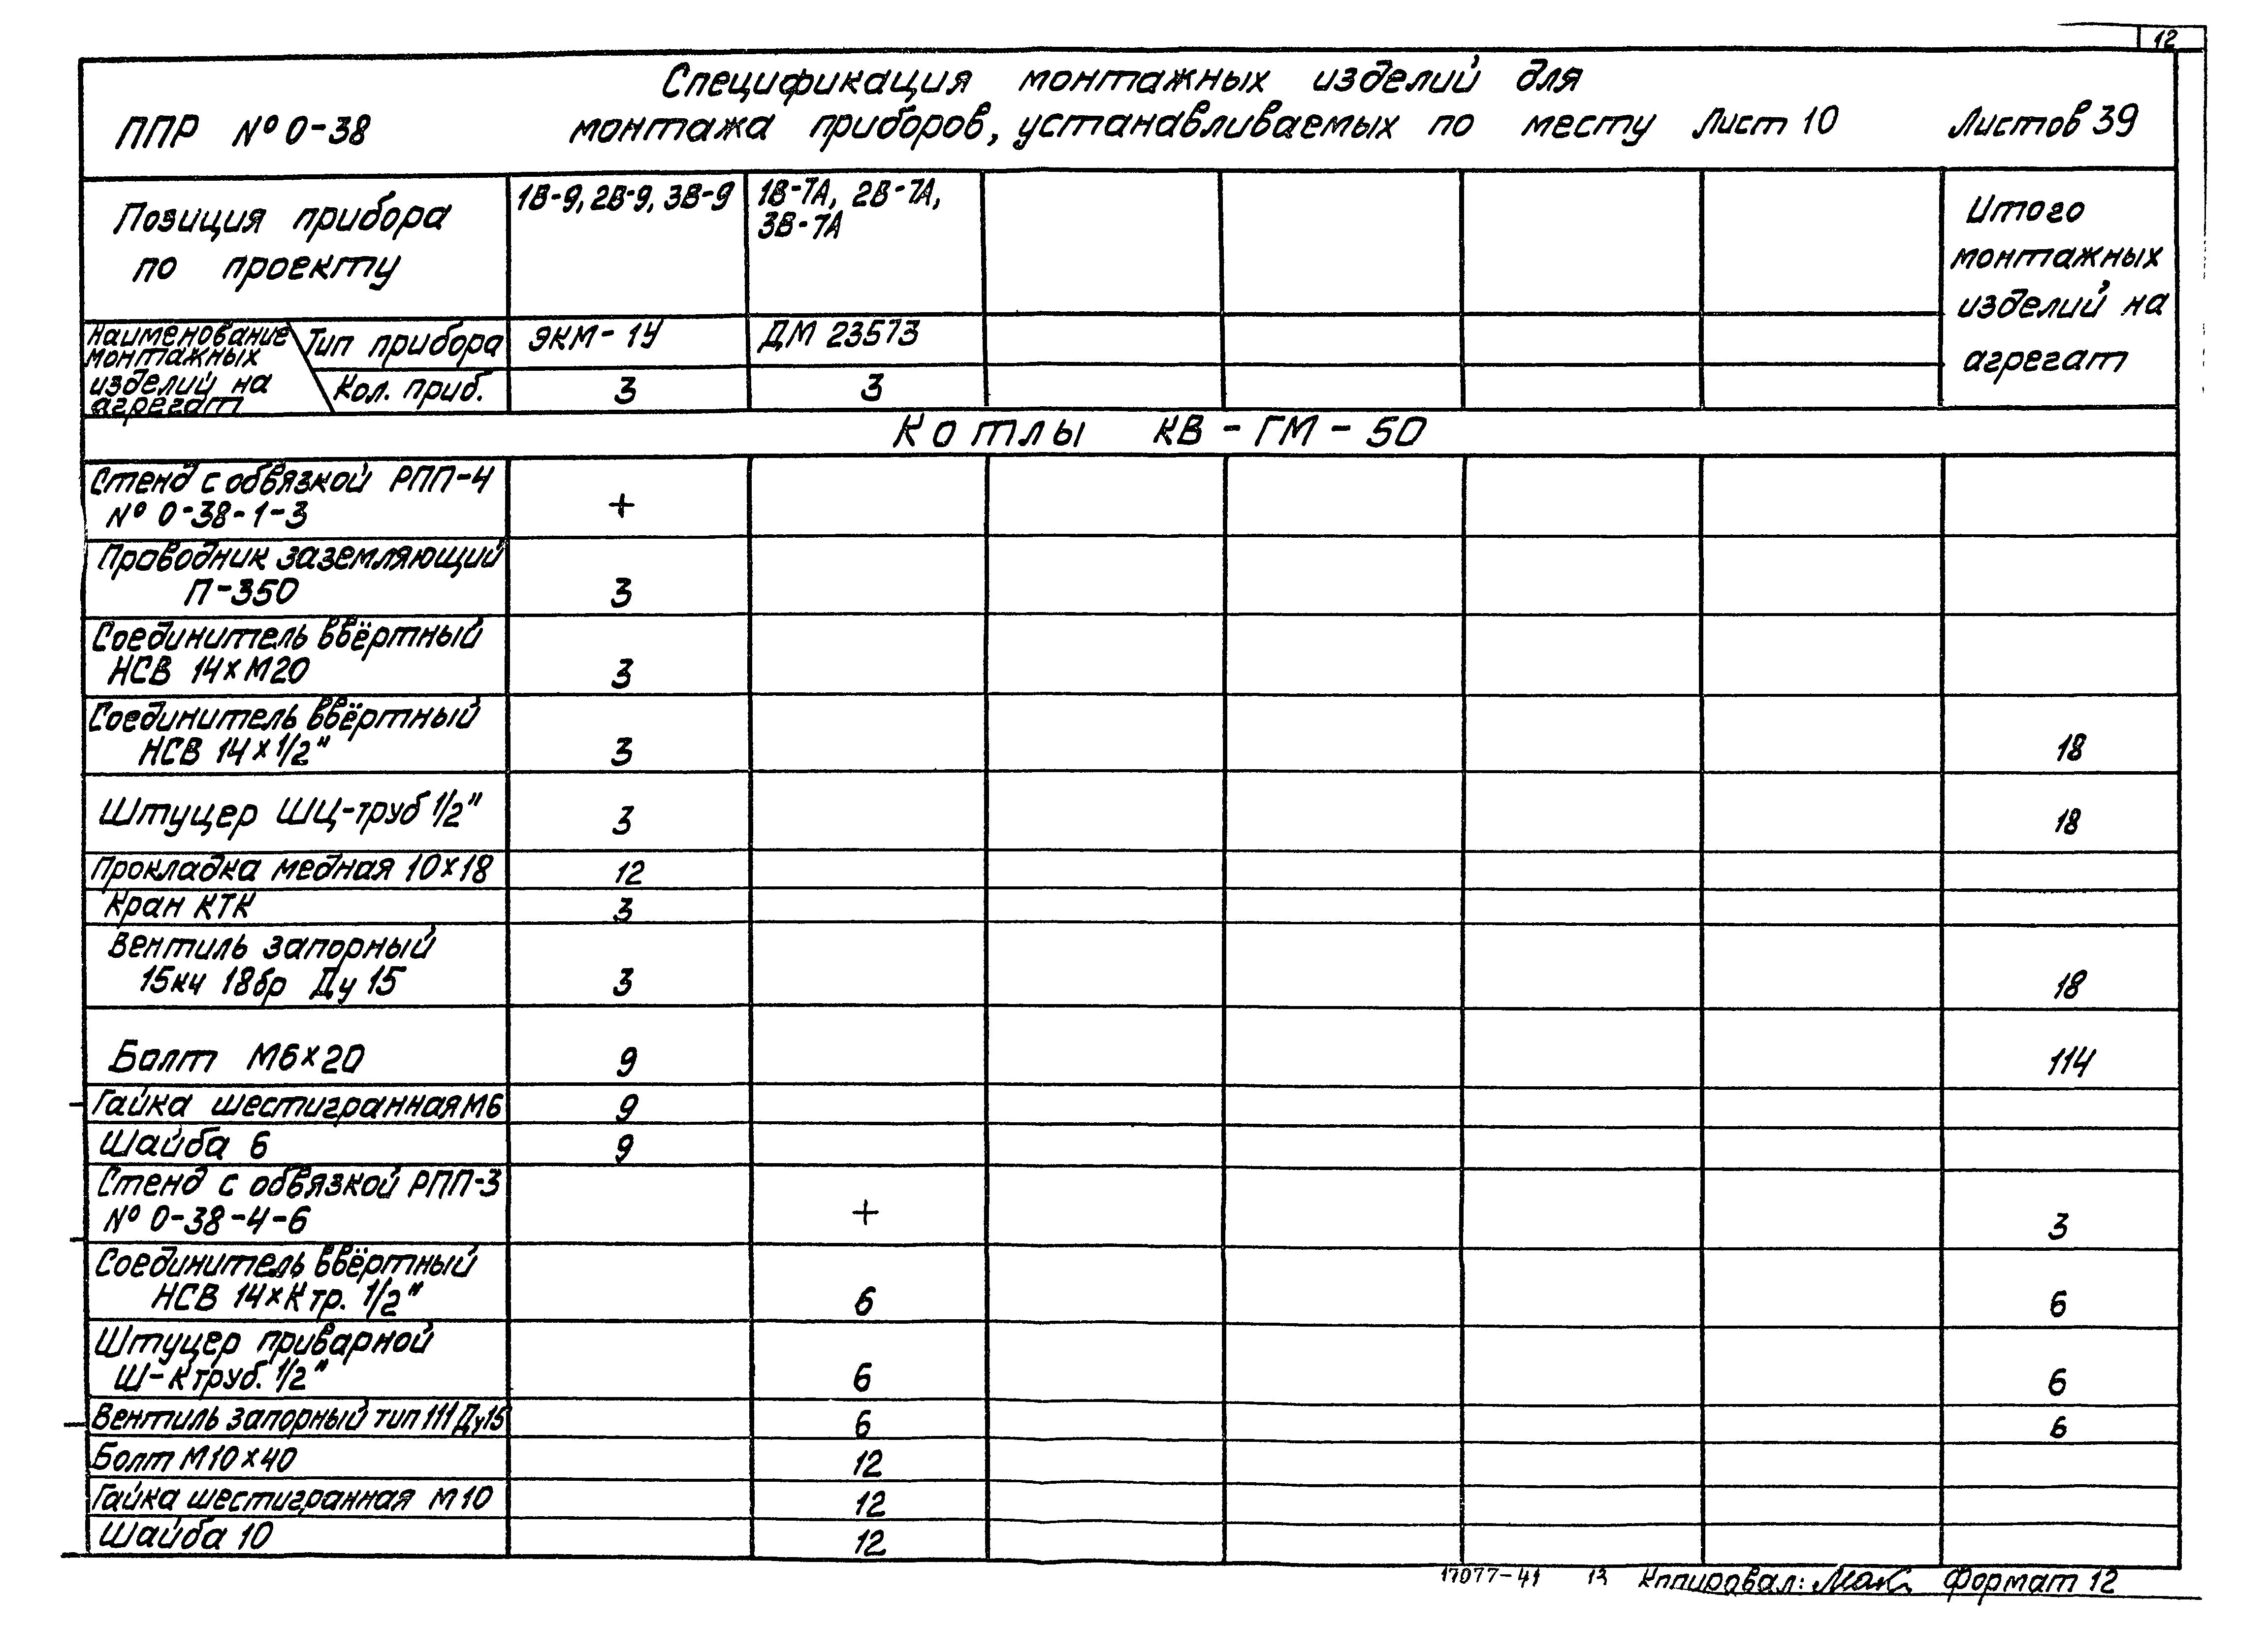 12
Спецификация монтажных изделий для
ППР № 0-38 монтажа приборов, устанавливаемых по месту Лист 10 Листов 39
Позиция прибора
по проекту
1В-9, 2В-9, 3В-9
1В-7А, 2В-7А,
3В-7А
Итого
монтажных
изделий на
агрегат
Наименование
монтажных
изделий на
агрегат
Тип прибора ЭКМ-1У ДМ 23573
Кол. приб. 3 3
Котлы КВ-ГМ-50
Стенд с обвязкой РПП-4
№ 0-38-1-3 +
Проводник заземляющий
П-350 3
Соединитель ввёртный
НСВ 14хМ20 3
Соединитель ввёртный
НСВ 14х1/2" 3 18
Штуцер ШЦ-труб 1/2" 3 18
Прокладка медная 10х18 12
Кран КТК 3
Вентиль запорный
15кч 18бр Ду 15 3 18
Болт М6х20 9 114
Гайка шестигранная М6 9
Шайба 6 9
Стенд с обвязкой РПП-3
№ 0-38-4-6 + 3
Соединитель ввёртный
НСВ 14хК тр. 1/2" 6 6
Штуцер приварной
Ш-К труб. 1/2" 6 6
Вентиль запорный тип 111 Ду15 6 6
Болт М10х40 12
Гайка шестигранная М10 12
Шайба 10 12
17077-41 13 Копировал: Формат 12